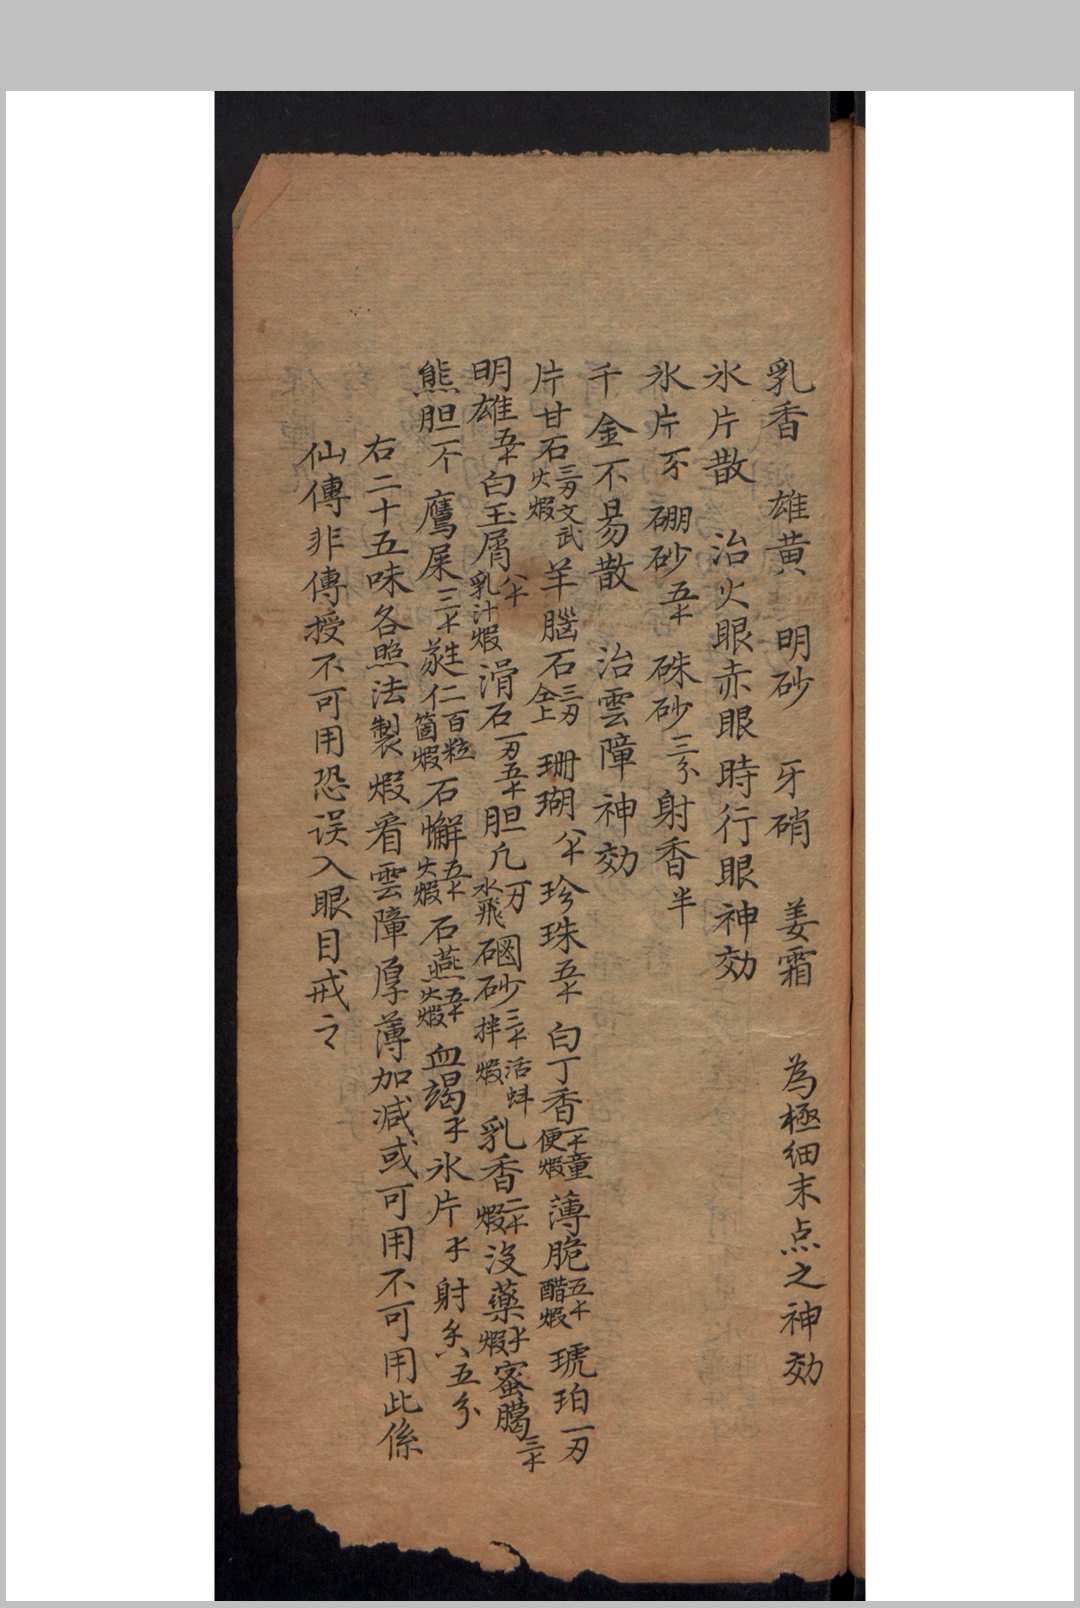 乳香 雄黄 明砂 牙硝 姜霜 為極細末点之神効
氷片散 治火眼赤眼時行眼神効
氷片 硼砂五 硃砂三分 射香半
千金不易散 治雲障神効
片甘石三刃文武火煆 羊腦石三刃仝上 珊瑚 珍珠五 白丁香一童便煆 薄脆五醋煆 琥珀一刃
明雄五 白玉屑八乳汁煆 滑石一刃五 胆凡一刃水飛 硇砂三活蚌拌煆 乳香二煆 没藥煆 蜜臈三
熊胆一个 鷹屎三 蕤仁二百粒箇煆 石懈五火煆 石燕五火煆 血竭 氷片 射 五分
右二十五味各照法製煆看雲障厚薄加减或可用不可用此係
仙傳非傳授不可用恐误入眼目戒之